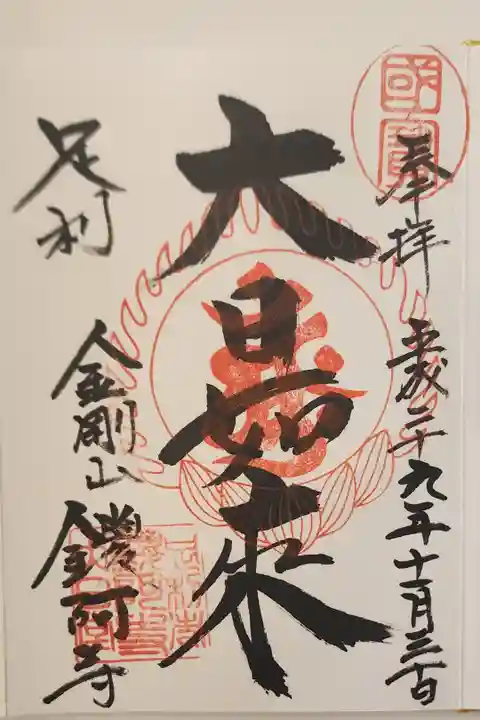 國寶
奉拝 平成二十九年十月三十日
大日如来
足利
金剛山 鑁阿寺